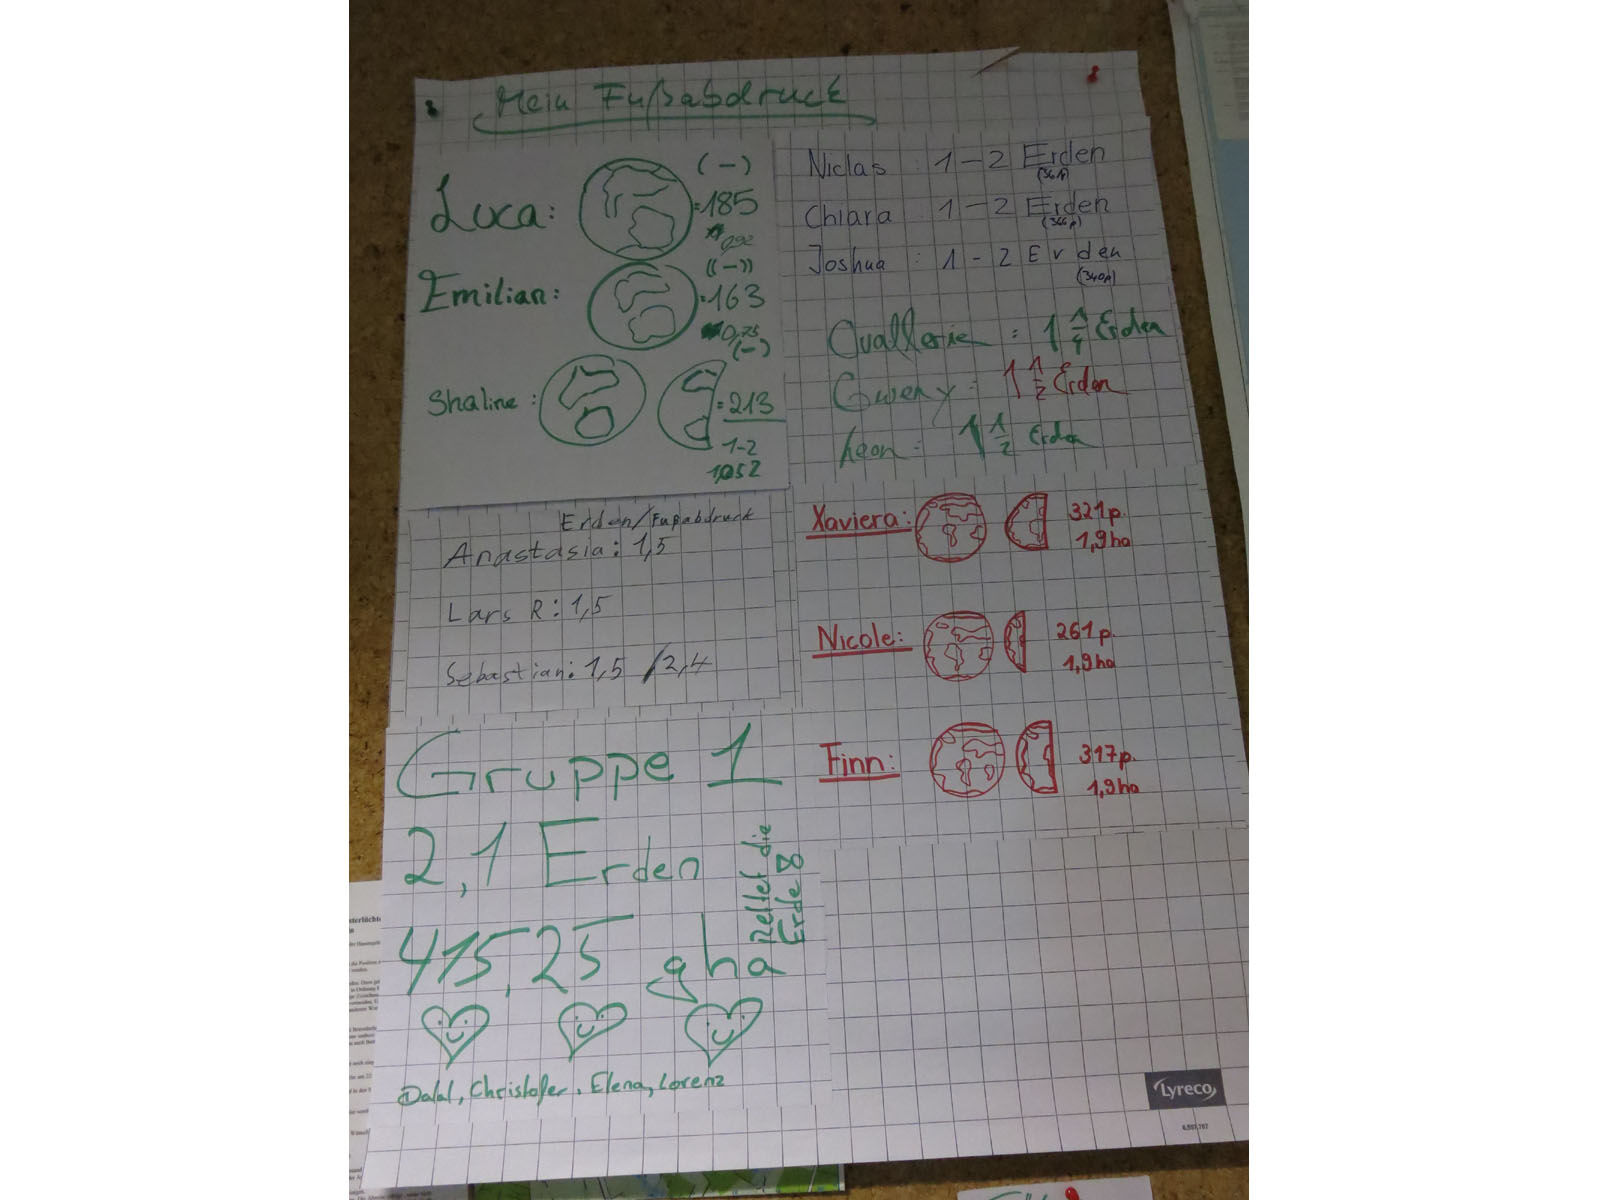 Mein Fußabdruck
Luca: = 185
(-)
0,92
Emilian: = 163
((-))
0,75
Shaline: = 213
(-)
1-2
1,052
Niclas : 1-2 Erden
Chiara : 1-2 Erden
Joshua : 1-2 Erden
(340p)
: 1 1/4 Erden
Gweny: 1 1/2 Erden
Leon: 1 1/2 Erden
Erden/Fußabdruck
Anastasia: 1,5
Lars R: 1,5
Sebastian: 1,5 /2,4
Xaviera: 321p.
1,9ha
Nicole: 261p.
1,9ha
Finn: 317p.
1,9ha
Gruppe 1
2,1 Erden
415,25 gha
Rettet die
Erde
Dalal, Christofer, Elena, Lorenz
Lyreco